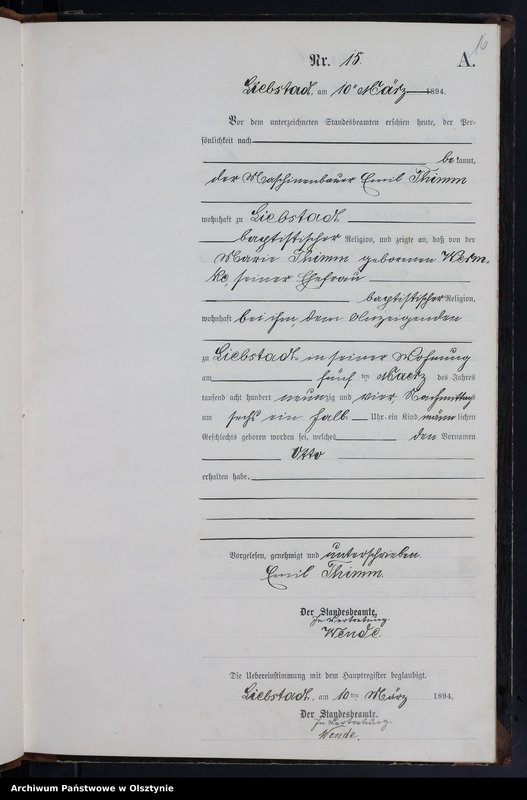 16
Nr. 15. A.
Liebstadt, am 10t März 1894.
Vor dem unterzeichneten Standesbeamten erschien heute, der Per-
sönlichkeit nach
be kannt,
der Maschinenbauer Emil Thimm
wohnhaft zu Liebstadt
baptistischer Religion, und zeigte an, daß von der
Marie Thimm geborenen Werm-
ke, seiner Ehefrau
baptistischer Religion,
wohnhaft bei ihm, dem Anzeigenden
zu Liebstadt in seiner Wohnung
am fünf ten Maerz des Jahres
tausend acht hundert neunzig und vier, Nachmittag
um sechs ein halb Uhr ein Kind männlichen
Geschlechts geboren worden sei, welches den Vornamen
Otto
erhalten habe.
Vorgelesen, genehmigt und unterschrieben.
Emil Thimm.
Der Standesbeamte.
In Vertretung.
Wende.
Die Uebereinstimmung mit dem Hauptregister beglaubigt.
Liebstadt, am 10ten März 1894.
Der Standesbeamte.
In Vertretung.
Wende.
Archiwum Państwowe w Olsztynie